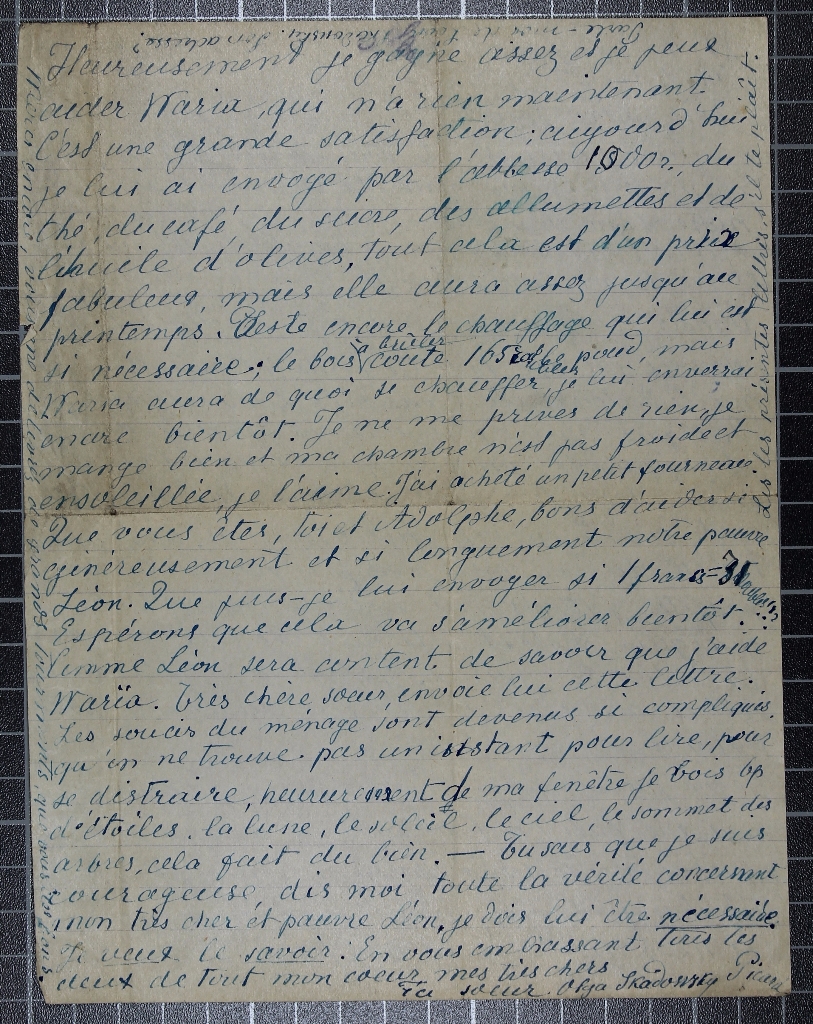 Parle-moi de Skadowsky. Son adresse?
Heureusement je gagne assez et je peux
aider Waria, qui n'a rien maintenant.
C'est une grande satisfaction; aujourd'hui
je lui ai envoyé par l'abbesse 1000r., du
thé, du café, du sucre, des allumettes et de
l'huile d'olives, tout cela est d'un prix
fabuleux, mais elle aura assez jusqu'au
printemps. Reste encore le chauffage qui lui est
si nécessaire; le bois à brûler coûte 165 le poud, mais
Waria aura de quoi se chauffer, je lui enverrai
encore bientôt. Je ne me prives de rien, je
mange bien et ma chambre n'est pas froide et
ensoleillée, je l'aime. J'ai acheté un petit fourneau.
Que vous êtes, toi et Adolphe, bons d'aider si
généreusement et si longuement notre pauvre
Léon. Que puis-je lui envoyer si 1 franc =
Espérons que cela va s'améliorer bientôt..
Comme Léon sera content de savoir que j'aide
Waria. Très chère soeur, envoie lui cette lettre.
Les soucis du ménage sont devenus si compliqués
qu'on ne trouve pas un instant pour lire, pour
se distraire, heureusement de ma fenêtre je vois bp
d'étoiles, la lune, le soleil, le ciel, le sommet des
arbres, cela fait du bien. — Tu sais que je suis
courageuse dis moi toute la vérité concernant
mon très cher et pauvre Léon, je dois lui être nécessaire.
Je veux le savoir. En vous embrassant tous les
deux de tout mon coeur mes très chers
Ta soeur Olga Skadowsky
Lis les présentes s'il te plaît.